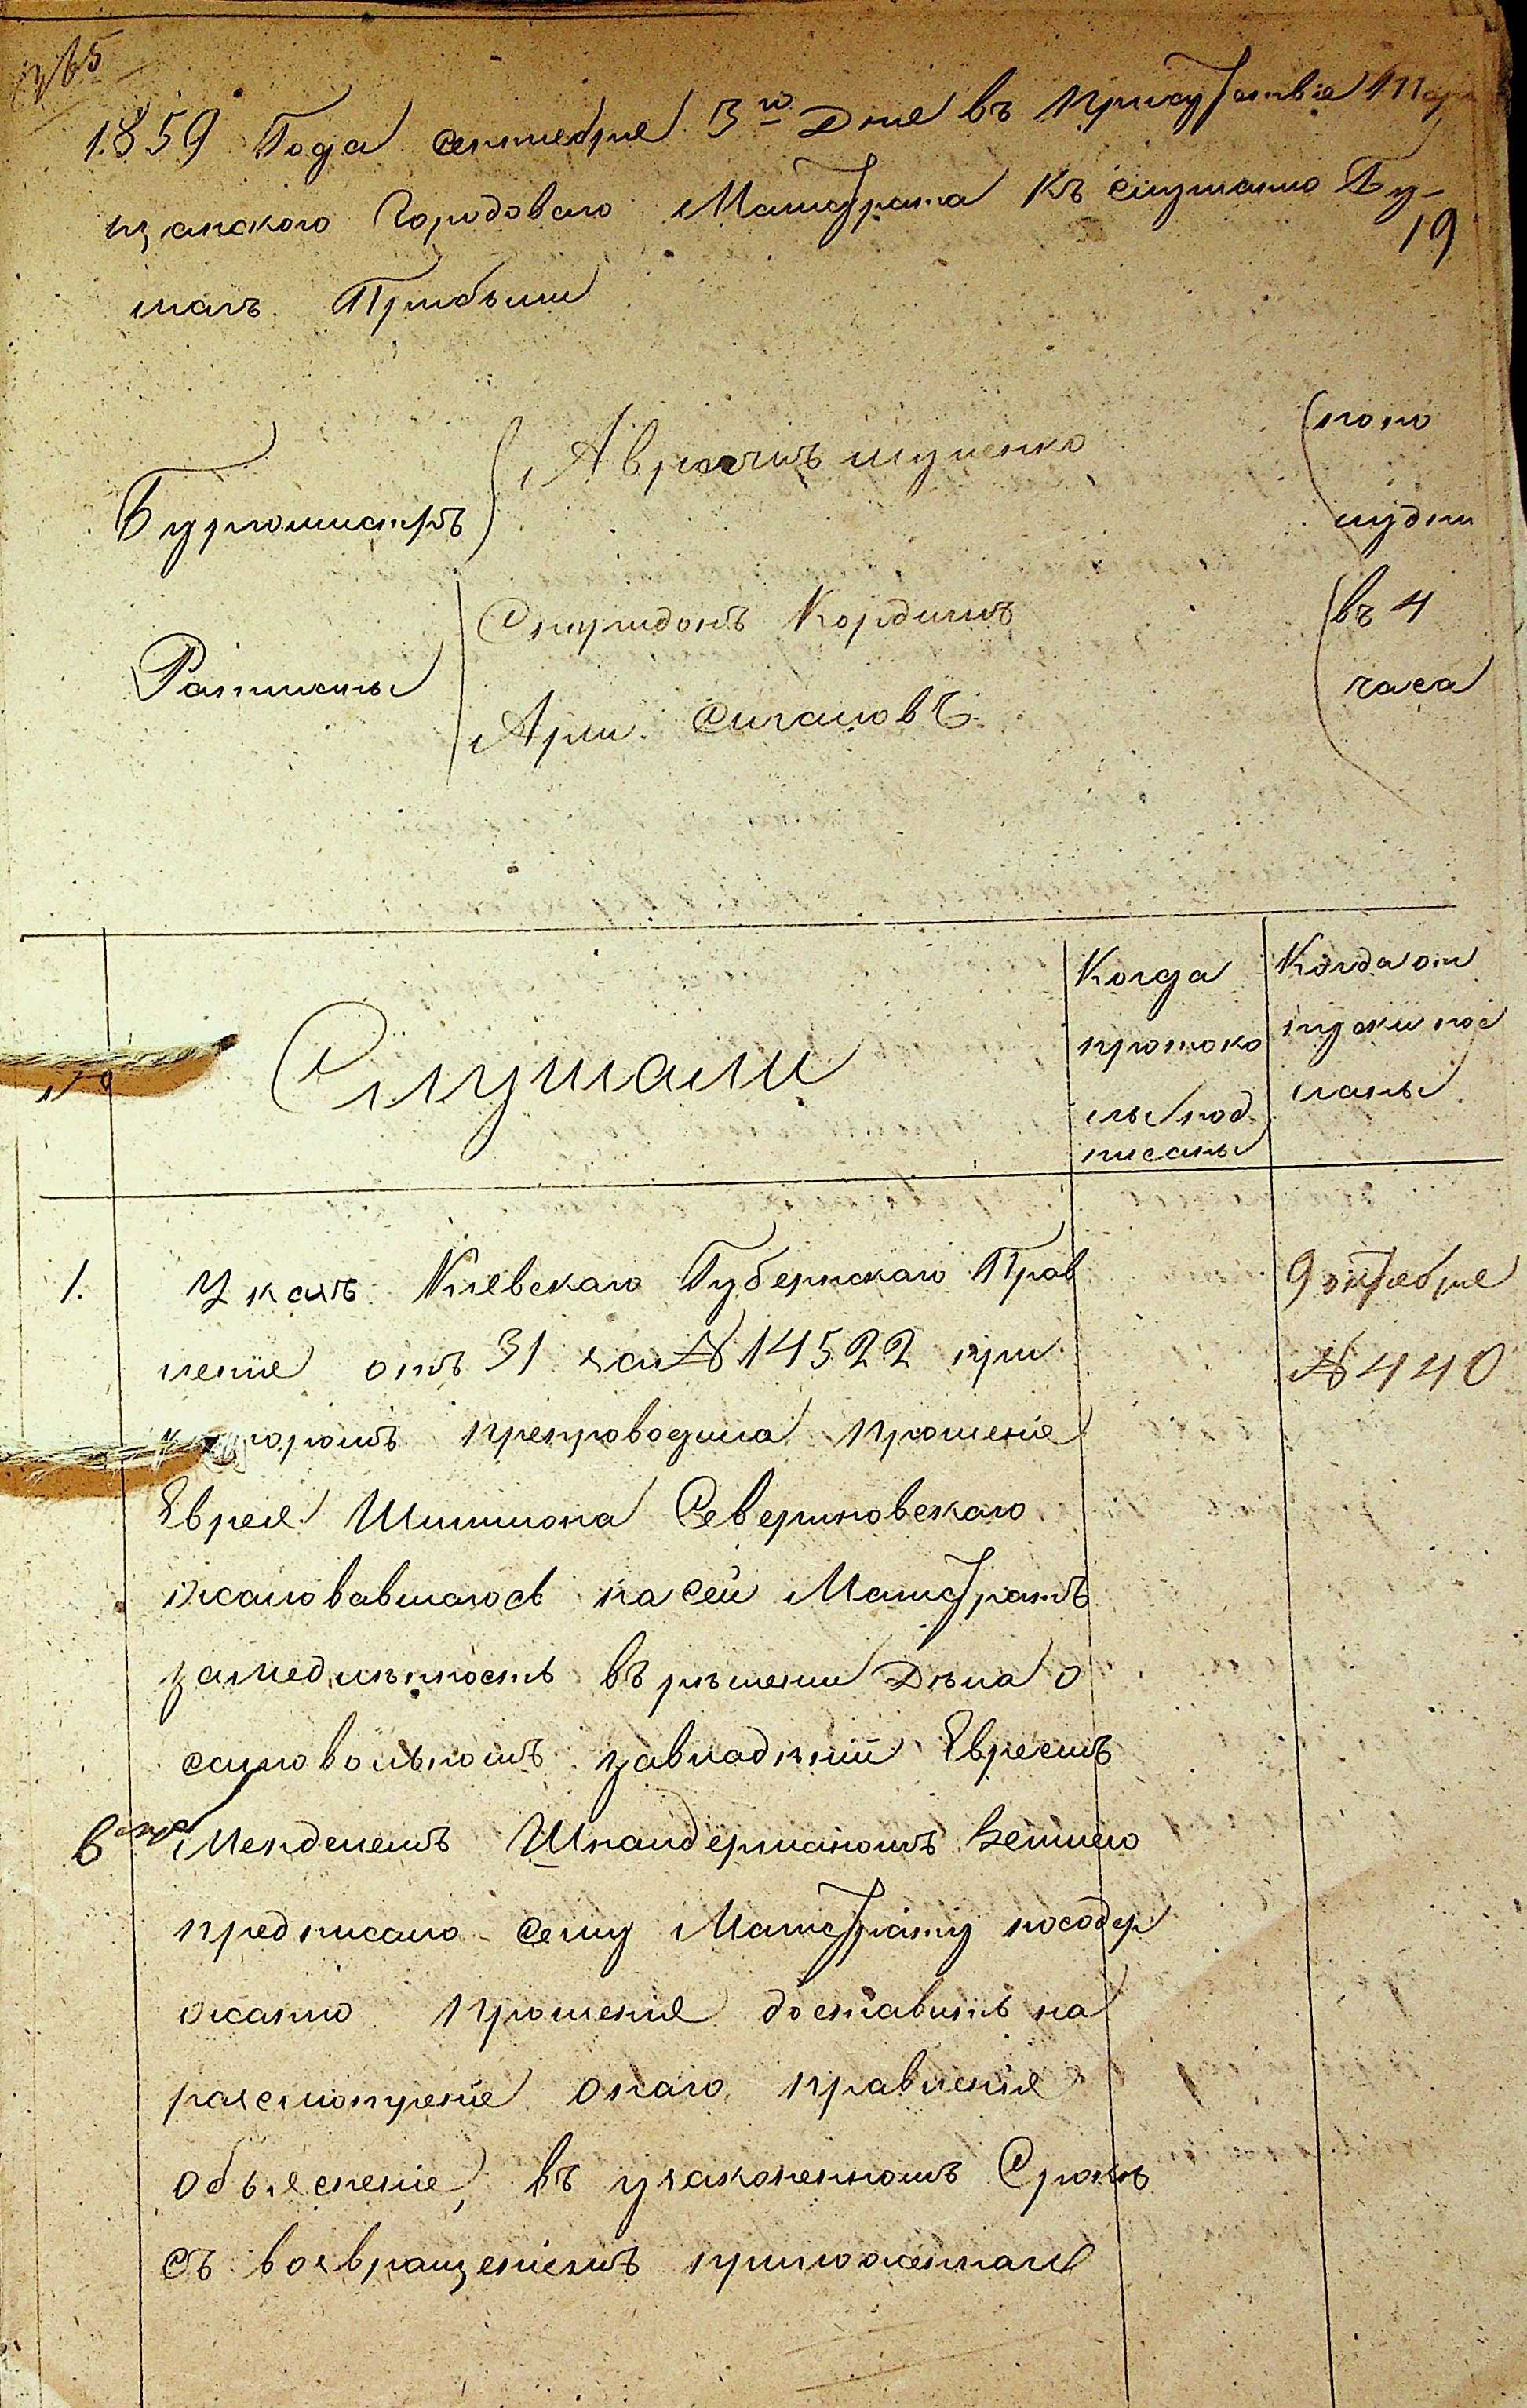 1859 Года сентебря 3го Дня въ Присутствіе
щанского Городоваго Магистрата Къ слушанію Бу-
19
магъ Прибыли
Бургомистръ
попо
лудни
Спиридонъ Кордишъ
въ 4
Ратманы
часа
Слушали
Когда
протоко
лы под
писаны
Когда от
пуски пос
ланы
№
1. Указъ Кіевскаго Губернскаго Прав
ленія отъ 31 за № 14522 при
которомъ препроводила прошеніе
Еврея Шимшона Севериновскаго
жаловавшагось на сей Магистратъ
замедлѣнность въ рѣшеніи Дѣла о
самовольномъ завладѣніи Евреемъ
Менделемъ Шнайдерманомъ
предписано сему Магистрату посодер
жанію прошенія доставить на
разсмотреніе онаго правленія
объясненіе, въ узаконенномъ Срокѣ
съ возвращеніемъ приложенная
9 октебря
№ 440